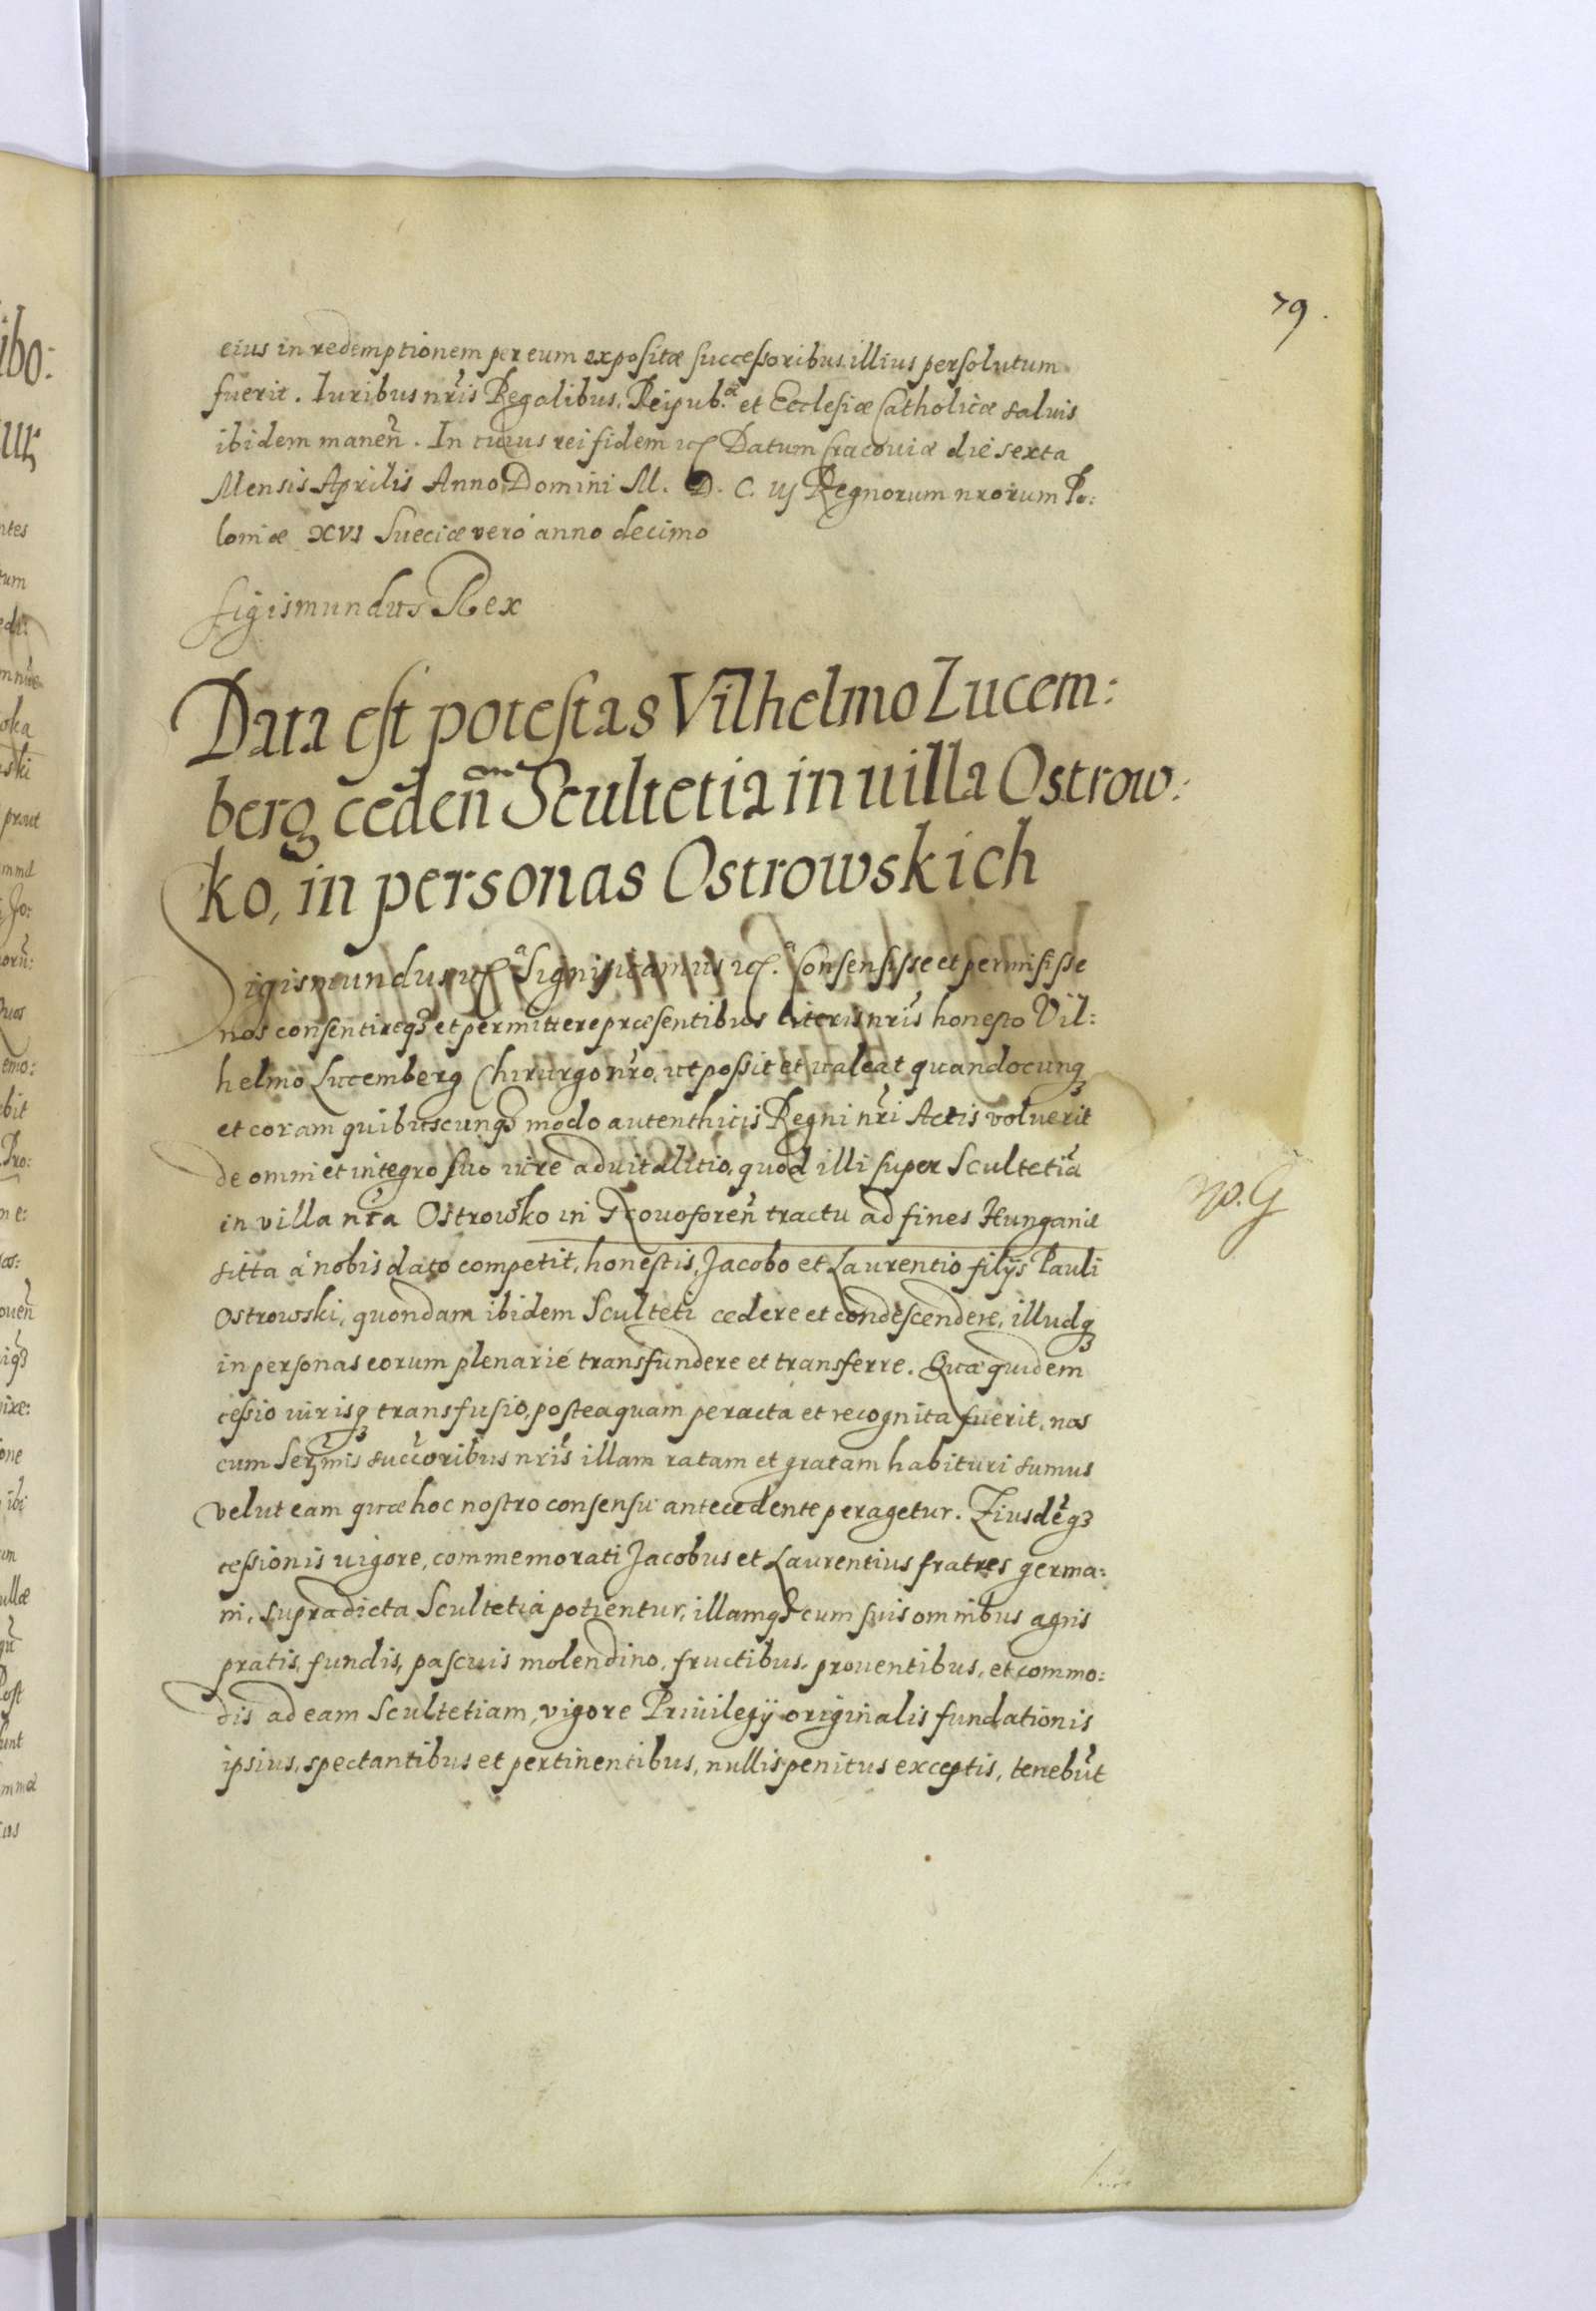 79.
eius in redemptionem per eum expositæ successoribus illius persolutum
fuerit. Iuribus nr̃is Regalibus, Reipub.æ et Ecclesiæ Catholicæ saluis
ibidem maneñ. In cuius rei fidem etc Datum Cracouiæ die sexta
Mensis Aprilis Anno Domini M. D. C. iij Regnorum nrorum Po:
loniæ XVI Sueciæ veró anno decimo
Sigismundus Rex
Data est potestas Vilhelmo Lucem:
berg cedeñ Scultetia in uilla Ostrow:
ko, in personas Ostrowskich
Sigismundus etc.a Significamus etc.a Consensisse et permisisse
nos consentireq3 et permittere præsentibus literis nr̃is honesto Vil:
helmo Lucemberg Chirurgo nr̃o, ut possit et ualeat quandocunq3
et coram quibuscunq3 modo autenthicis Regni nr̃i Actis voluerit
de omni et integro suo iure aduitalitio, quod illi super Scultetiã
in villa nr̃a Ostrowsko in Nouoforeñ tractu ad fines Hungariæ
sitta à nobis dato competit, honestis, Jacobo et Laurentio filijs Pauli
Ostrowski, quondam ibidem Sculteti cedere et condescendere, illudq3
in personas eorum plenarié transfundere et transferre. Quæ quidem
cessio iurisq3 transfusio, posteaquam peracta et recognita fuerit, nos
cum Serm̃is succ̃oribus nr̃is illam ratam et gratam habituri sumus
velut eam quæ hoc nostro consensu antecedente peragetur. Eiusdẽq3
cessionis uigore, commemorati Jacobus et Laurentius fratres germa:
ni, supradicta Scultetia potientur, illamq3 cum suis omnibus agris
pratis, fundis, pascuis molendino, fructibus, prouentibus, et commo:
dis ad eam Scultetiam, vigore Priuilegij originalis fundationis
ipsius, spectantibus et pertinentibus, nullis penitus exceptis, tenebũt